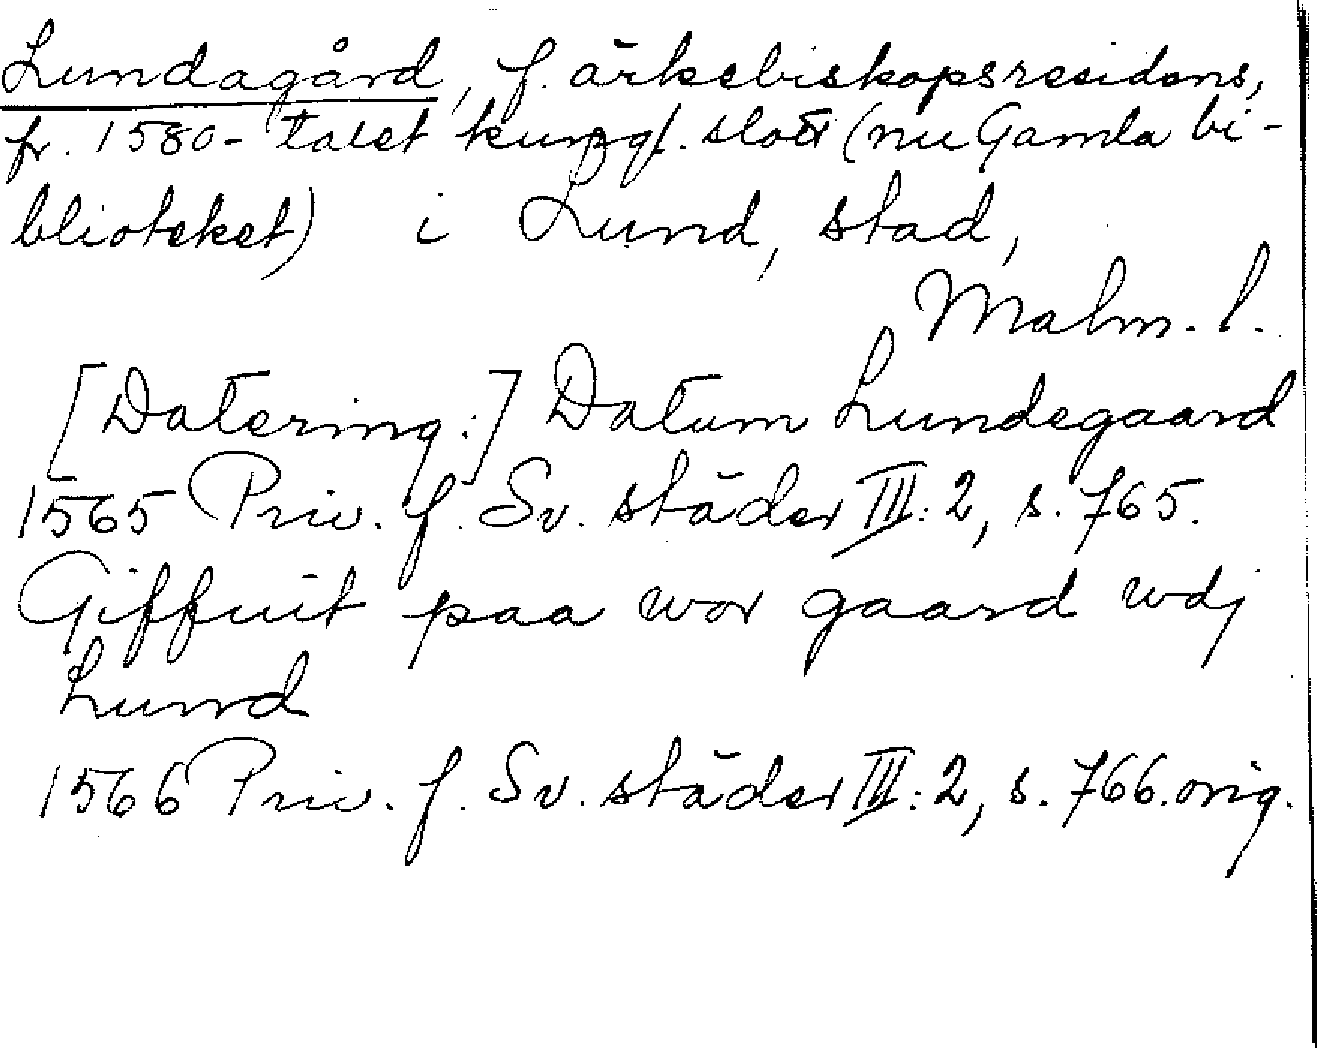 Lundagård, f. ärkebiskopsresidens,
fr. 1580-talet kungl. slott (nu Gamla bi-
blioteket) i Lund, stad,
Malm. l.
[Datering:] Datum Lundegaard
1565 Priv. f. Sv. städer III:2, s. 765.
Giffuit paa wor gaard wdj
Lund
1566 Priv. f. Sv. städer III:2, s. 766. orig.